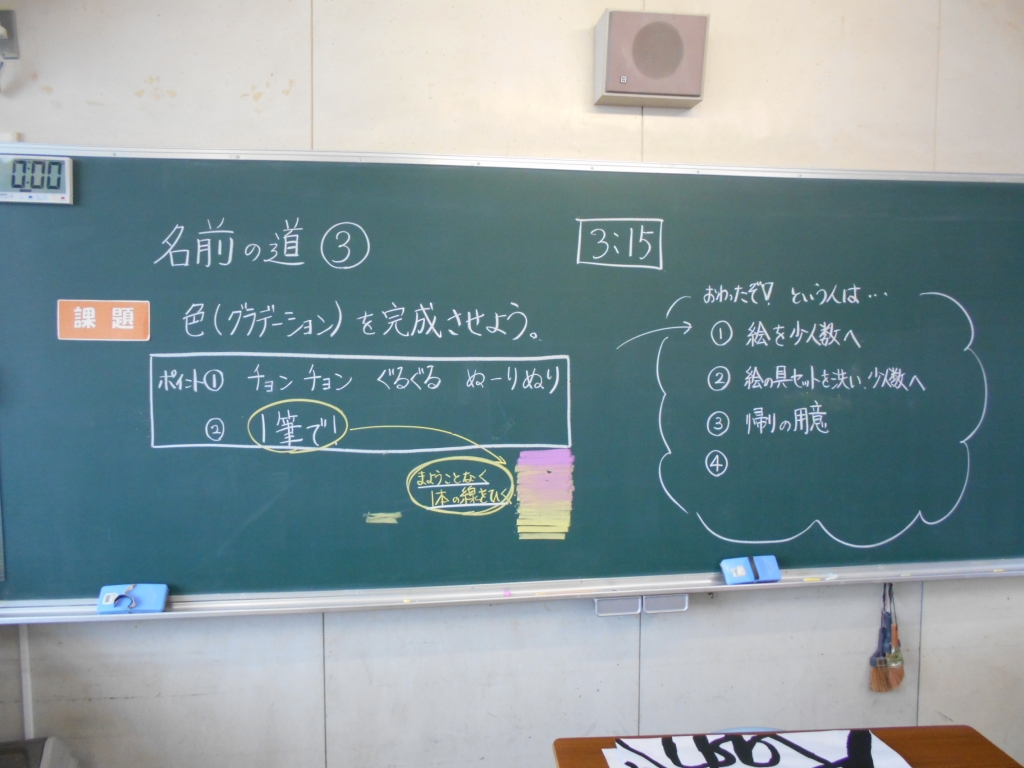 0:00
名前の道 ③
3:15
課題
色(グラデーション)を完成させよう。
ポイント① チョンチョン ぐるぐる ぬーりぬり
② 1筆で!
まようことなく
1本の線をひく
おわったぞ! という人は…
① 絵を少人数へ
② 絵の具セットを洗い、少人数へ
③ 帰りの用意
④